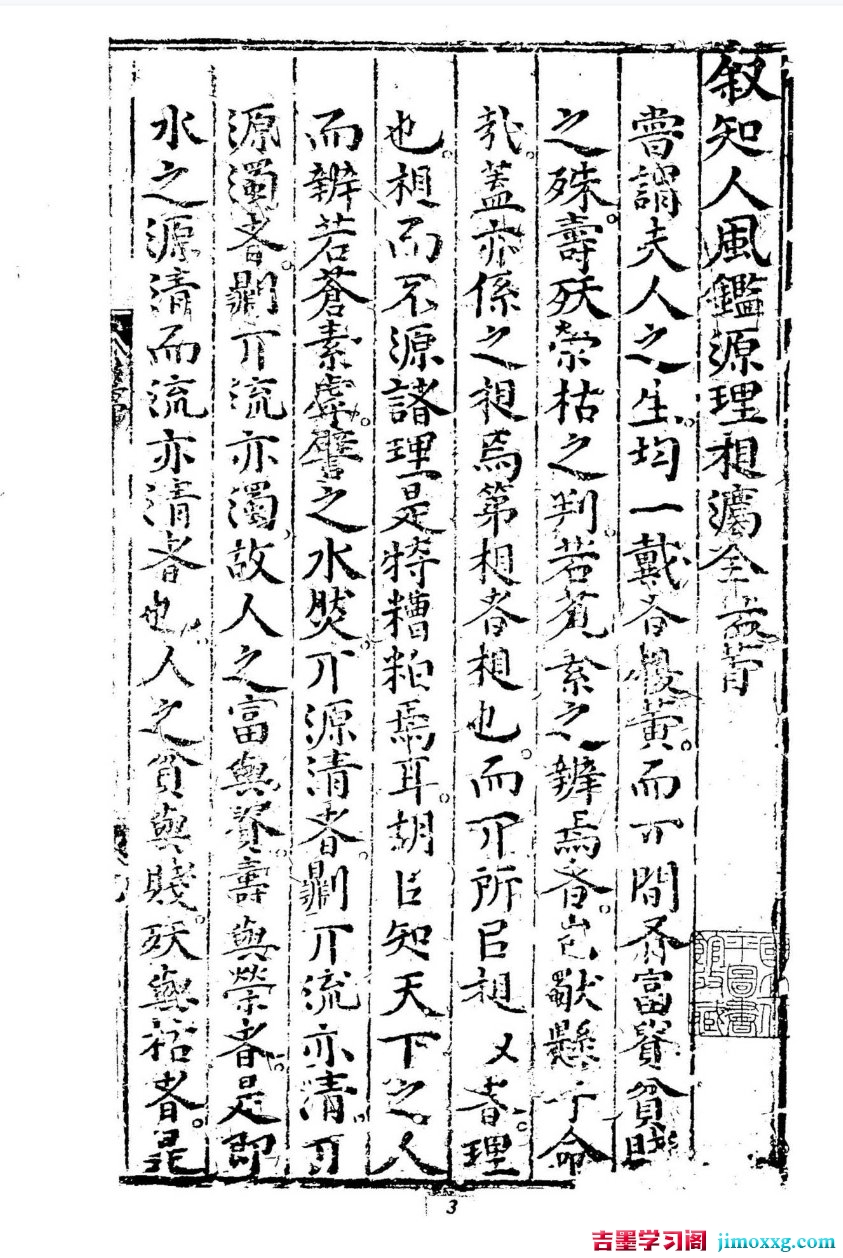 叙知人風鑑源理相灋全
嘗謂夫人之生。均一戴履黄。而丌間有富貴貧賤
之殊。壽殀榮枯之判。若蒼素之辨焉者。豈獨懸于命
㢤。蓋亦係之相焉。第相者相也。而丌所㠯相乂者。理
也。相而不源諸理。是特糟粕焉耳。胡㠯知天下之人
而辨若蒼素虖。譬之水然。丌源清者。𠟭丌流亦清。丌
源濁者。𠟭丌流亦濁。故人之富與貴。壽與榮者。是即
水之源清而流亦清者也。人之貧與賤。殀與枯者。是
平圖書
館收藏
3
吉墨学习阁 jimoxxg.com